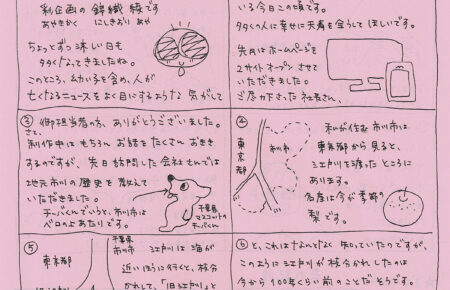 彩企画の 錦織 綾です
あやきかく にしきおり あや
ちょっとずつ涼しい日も
多くなってきましたね。
このところ、幼い子を含め、人が
亡くなるニュースをよく目にするような 気がして
いる今日この頃です。
多くの人に幸せに天寿を全うしてほしいです。
先月はホームページを
2サイトオープンさせて
いただきました。
ご尽力下さった社長さん、
③ 御担当者の方、ありがとうございました。
さて、
制作中はもちろん お話をたくさんおきき
するのですが、先日訪問した会社さんでは
地元市川の歴史を教えて
いただきました。
チーバくんでいうと、市川市は
ベロのよあたりです。
千葉県
マスコットの
チーバくん
④
東京都
市川市
私が住む市川市は
東京都から見ると、
江戸川を渡ったところに
あります。
名産は今が季節の
梨です。
⑤
東京都
千葉県
市川市
江戸川は海が
近いほうに行くと、枝分
かれして、「旧江戸川」と
⑥ と、これはなんとなく知っていたのですが、
このように江戸川が枝分かれしたのは
今から100年くらい前のことだそうです。